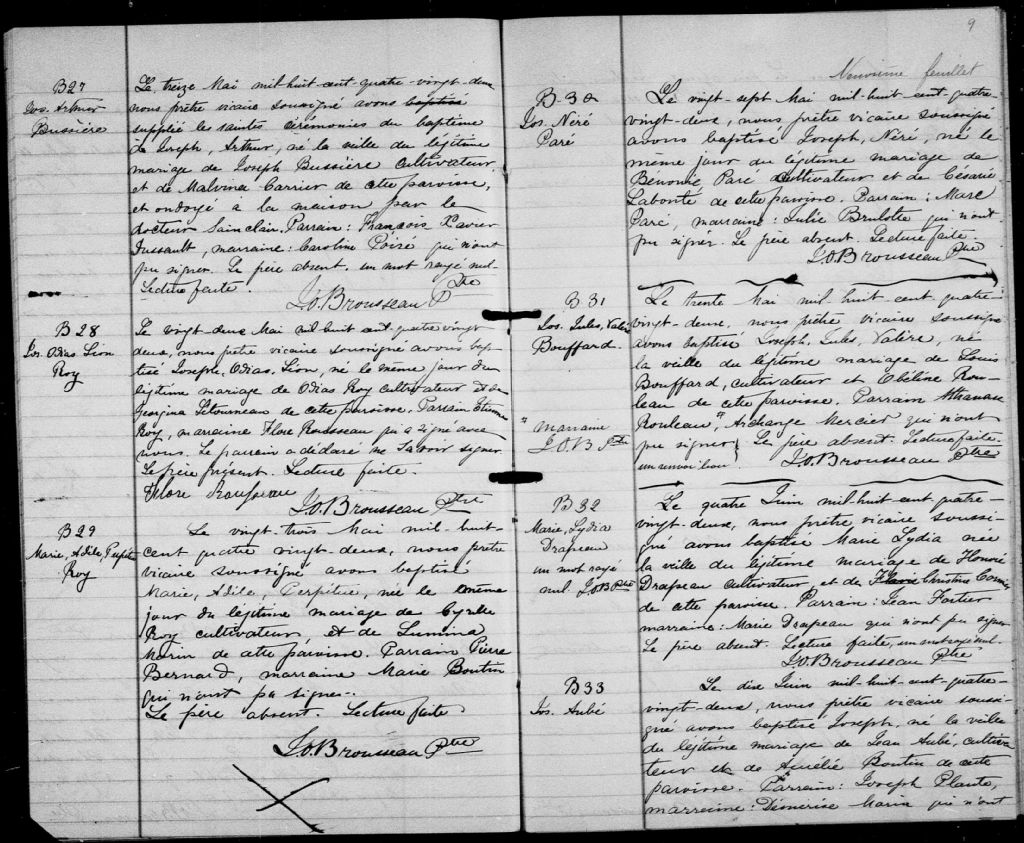 B27
Jos. Arthur
Bussière
Le treize Mai mil-huit-cent-quatre-vingt-deux
nous prêtre vicaire soussigné avons baptisé
supplié les saintes cérémonies du baptême
de Joseph, Arthur, né la veille du légitime
mariage de Joseph Bussière cultivateur
et de Malvina Carrier de cette paroisse,
et ondoyé à la maison par le
docteur Sainclair. Parrain: François Xavier
Dussault, marraine: Caroline Poiré qui n'ont
pu signer. Le père absent. un mot rayé nul.
Lecture faite.
J.O. Brousseau Ptre
B28
Jos. Odias Lion
Roy
Le vingt-deux Mai mil huit cent quatre vingt
deux, nous prêtre vicaire soussigné avons bap
tisé Joseph, Odias, Lion, né le même jour du
légitime mariage de Odias Roy cultivateur et de
Georgina Létourneau de cette paroisse. Parrain Etienne
Roy, marraine Flore Rousseau qui a signé avec
nous. Le parrain a déclaré ne savoir signer
Le père présent. Lecture faite.
Flore Rousseau
J.O. Brousseau Ptre
B29
Marie, Adile, Perpét
Roy
Le vingt-trois Mai mil-huit-
cent quatre vingt-deux, nous prêtre
vicaire soussigné avons baptisé
Marie, Adile, Perpétue, née le même
jour du légitime mariage de Cyrille
Roy cultivateur, et de Lumina
Morin de cette paroisse. Parrain Pierre
Bernard, marraine Marie Boutin
qui n'ont pu signer.
Le père absent. Lecture faite
J.O. Brousseau Ptre
9
Neuvième feuillet
B30
Jos. Néré
Paré
Le vingt-sept Mai mil-huit-cent-quatre-
vingt-deux, nous prêtre vicaire soussigné
avons baptisé Joseph, Néré, né le
même jour du légitime mariage de
Bénonie Paré cultivateur et de Césarie
Labonté de cette paroisse. Parrain: Marc
Paré, marraine: Julie Brulotte qui n'ont
pu signer. Le père absent. Lecture faite.
J.O. Brousseau Ptre
B31
Jos. Jules, Valère
Bouffard.
" marraine
J.O.B. Ptre
Le trente Mai mil-huit-cent-quatre-
vingt-deux, nous prêtre vicaire soussigné
avons baptisé Joseph, Jules, Valère, né
la veille du légitime mariage de Louis
Bouffard, cultivateur et Obéline Rou-
leau de cette paroisse. Parrain Athanase
Rouleau, " Archange Mercier qui n'ont
pu signer. Le père absent. Lecture faite.
un renvoi bon J.O. Brousseau Ptre
B32
Marie, Lydia
Drapeau
un mot rayé
nul J.O.B Ptre
Le quatre Juin mil-huit-cent-quatre-
vingt-deux, nous prêtre vicaire soussi-
gné avons baptisé Marie Lydia née
la veille du légitime mariage de Honoré
Drapeau cultivateur, et de Christine
de cette paroisse. Parrain: Jean Fortier
marraine: Marie Drapeau qui n'ont pu signer
Le père absent. Lecture faite, un mot rayé nul.
J.O. Brousseau Ptre
B33
Jos. Aubé
Le dix Juin mil-huit-cent-quatre-
vingt-deux, nous prêtre vicaire soussi-
gné avons baptisé Joseph, né la veille
du légitime mariage de Jean Aubé, cultiva
teur et de Aurélie Boutin de cette
paroisse. Parrain: Joseph Plante,
marraine: Démerise Marin qui n'ont